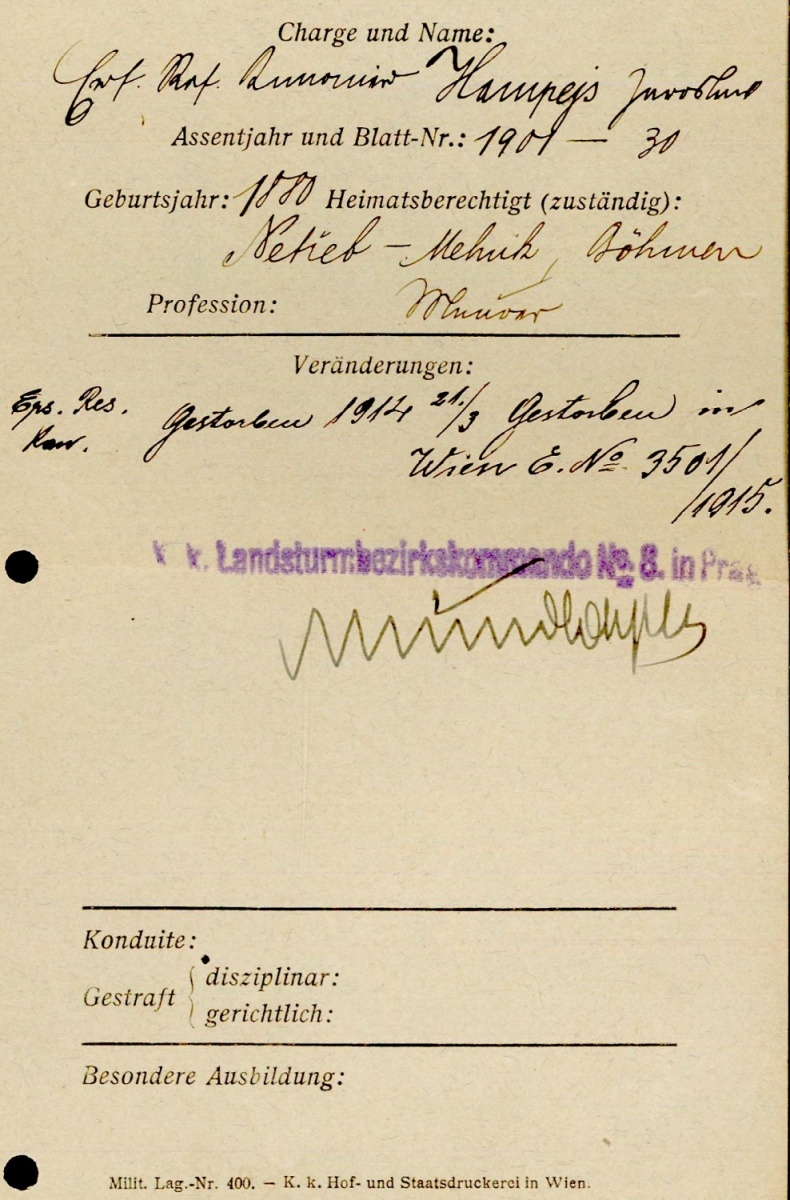 Charge und Name:
Ers. Res. Kanonier Hampejs Jaroslav
Assentjahr und Blatt-Nr.: 1901 — 30
Geburtsjahr: 1880 Heimatsberechtigt (zuständig):
Netřeb - Melnik, Böhmen
Profession:
Veränderungen:
Eps. Res. Gestorben 1914 21./3 Gestorben in
Kan. Wien E. No. 3501/
/1915.
k. k. Landsturmbezirkskommando No. 8. in Prag
Konduite:
Gestraft { disziplinar:
gerichtlich:
Besondere Ausbildung:
Milit. Lag.-Nr. 400. — K. k. Hof- und Staatsdruckerei in Wien.